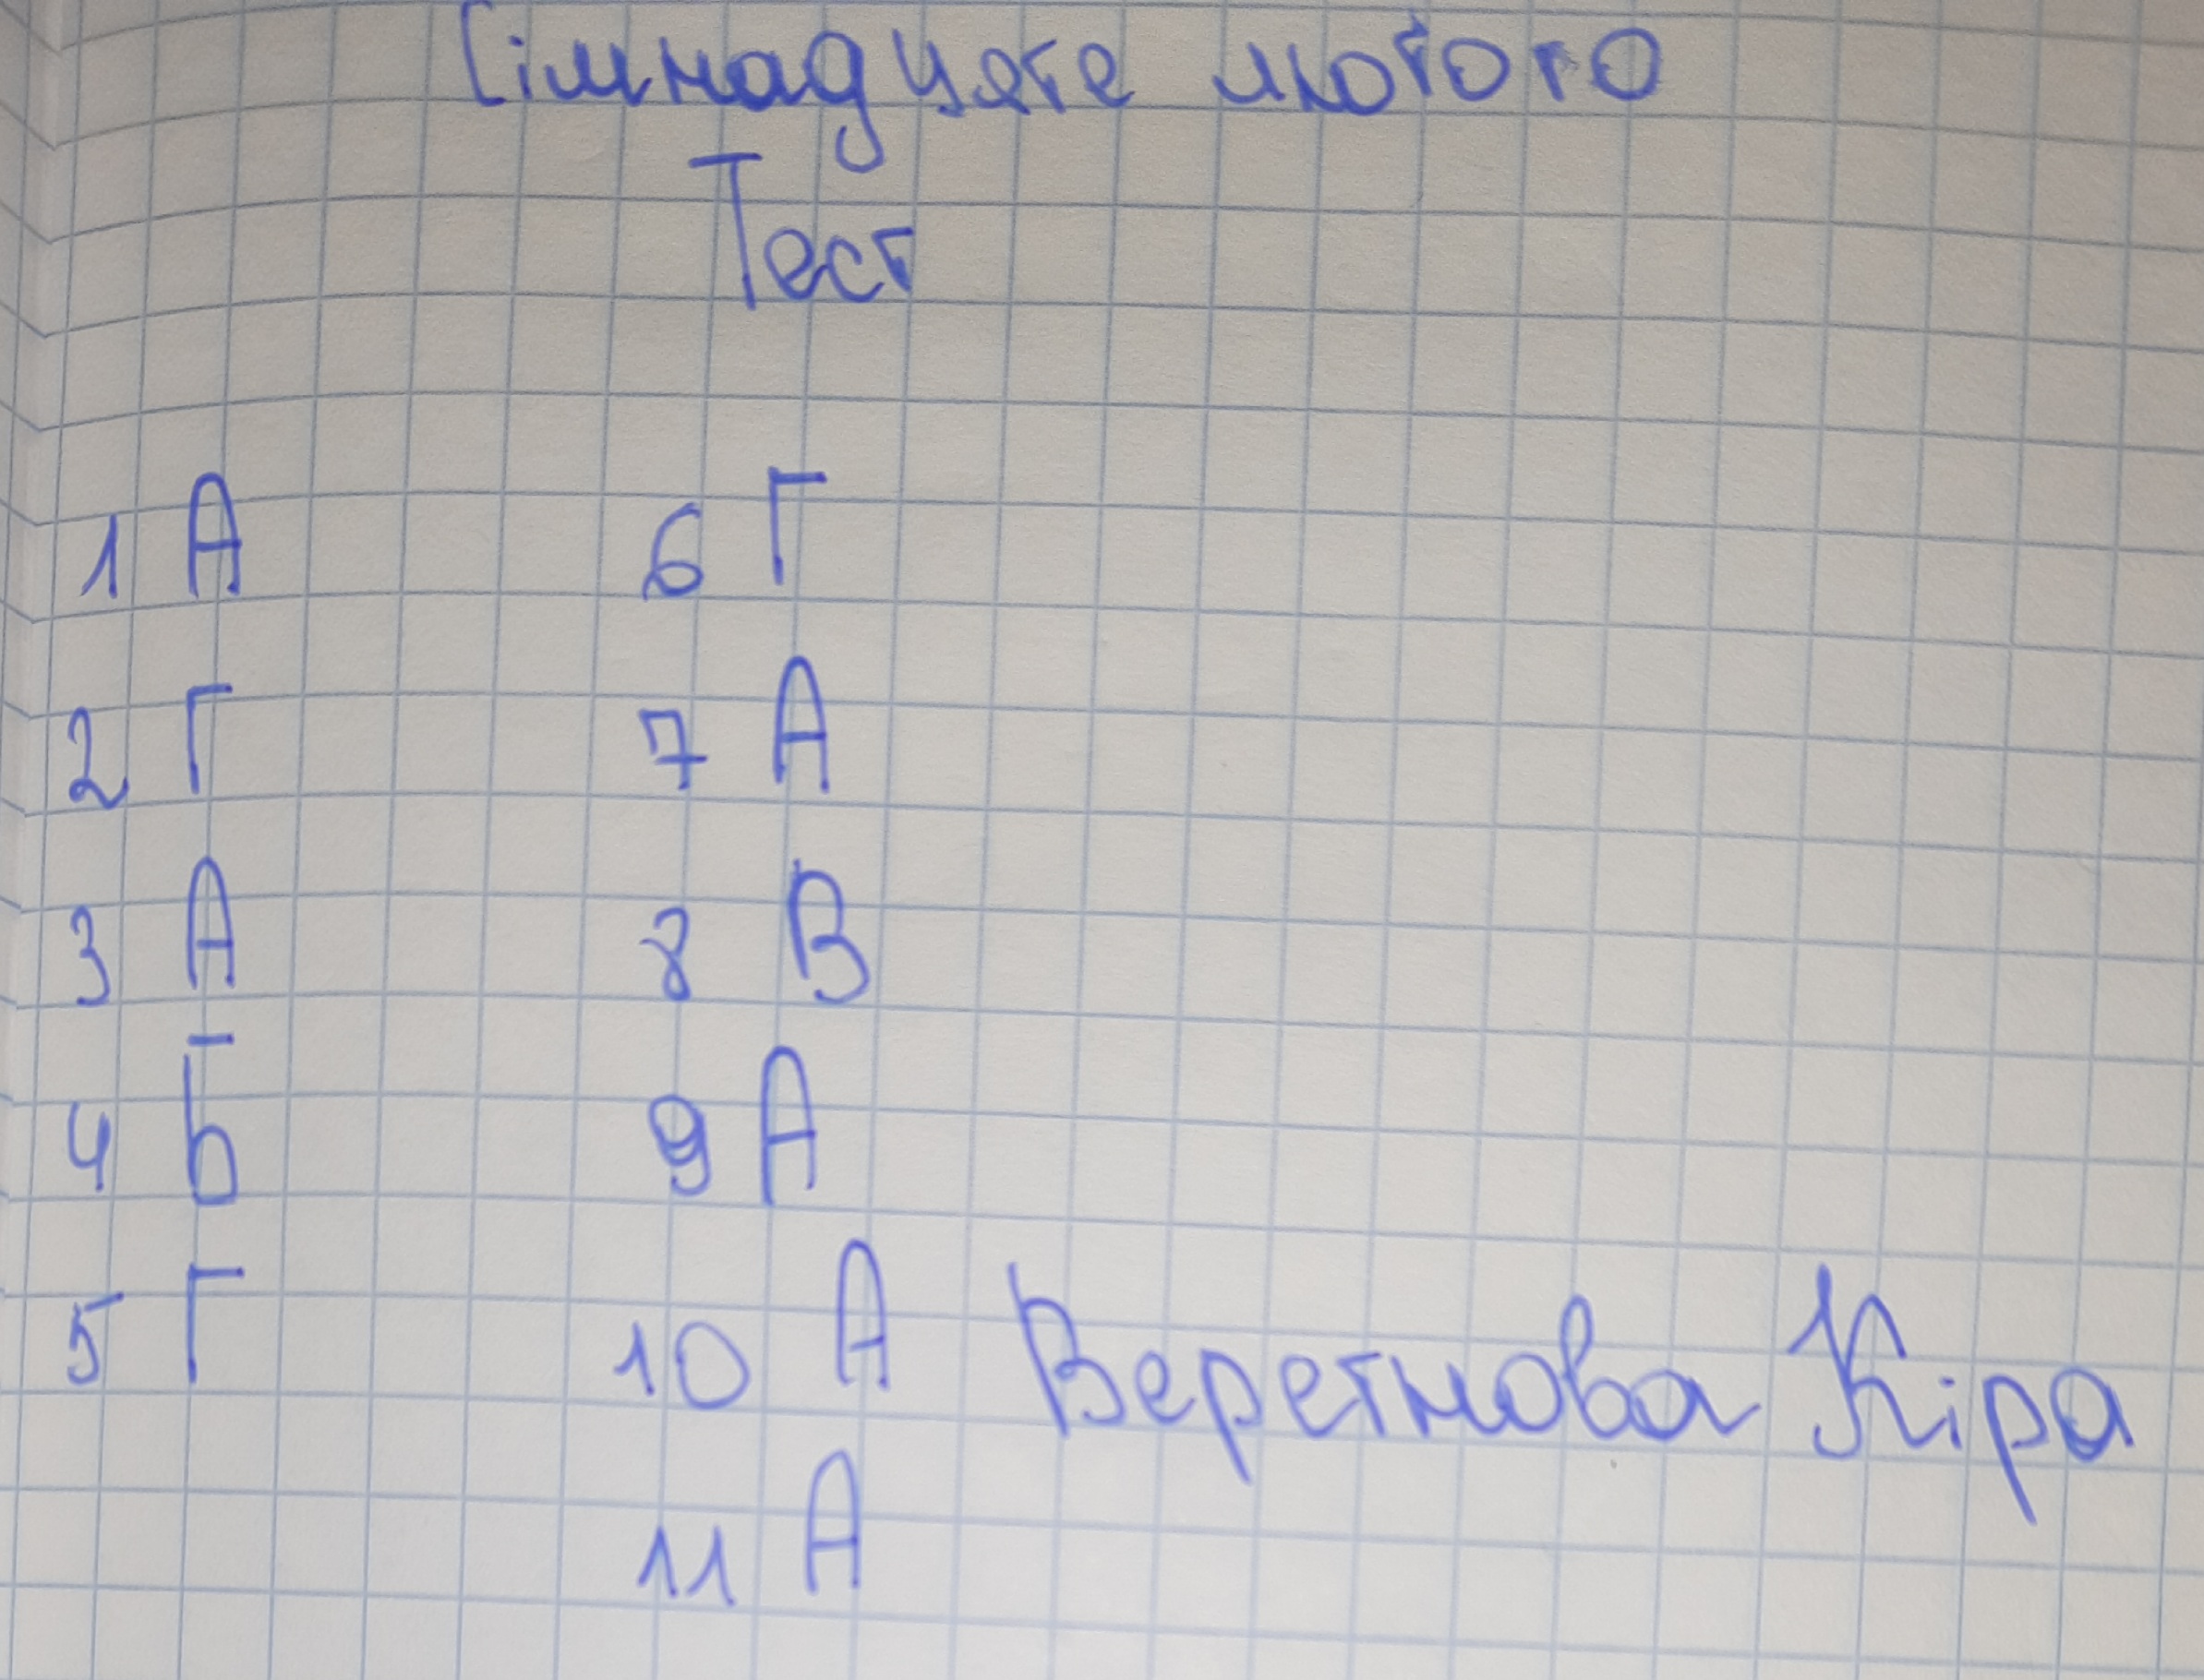 Сімнадцяте лютого
Тест
1 А
2 Г
3 А
4 Б
5 Г
6 Г
7 А
8 В
9 А
10 А Веретнова Кіра
11 А